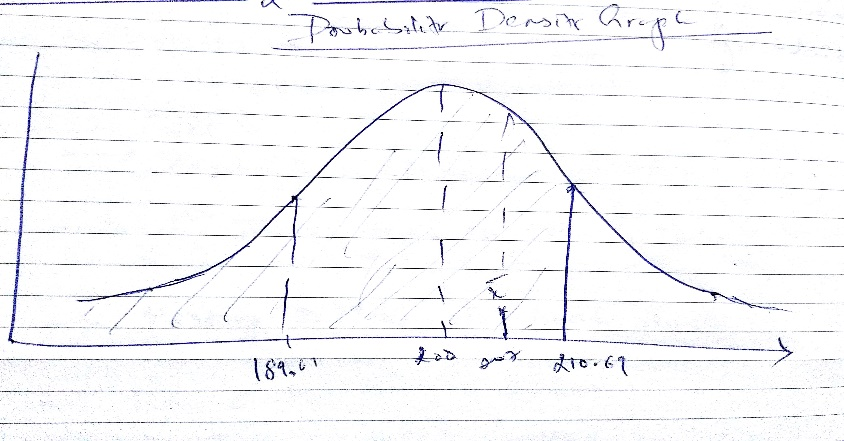 Probability Density Graph
x̄
200
210.69